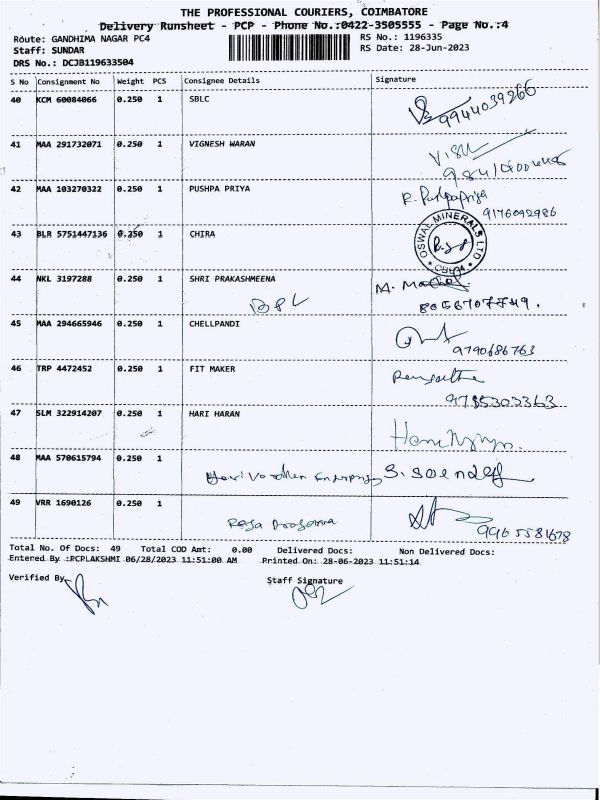 THE PROFESSIONAL COURIERS, COIMBATORE
Delivery Runsheet - PCP - Phone No.:0422-3505555 - Page No.:4
Route: GANDHIMA NAGAR PC4 RS No.: 1196335
Staff: SUNDAR RS Date: 28-Jun-2023
DRS No.: DCJB119633504
S No Consignment No Weight PCS Consignee Details Signature
40 KCM 60084066 0.250 1 SBLC 9944039266
41 MAA 291732071 0.250 1 VIGNESH WARAN
42 MAA 103270322 0.250 1 PUSHPA PRIYA R. Pushpapriya
9176092986
43 BLR 5751447136 0.250 1 CHIRA OSWAL MINERALS LTD
44 NKL 3197288 0.250 1 SHRI PRAKASHMEENA M.
45 MAA 294665946 0.250 1 CHELLPANDI
9790686763
46 TRP 4472452 0.250 1 FIT MAKER
9785302363
47 SLM 322914207 0.250 1 HARI HARAN
48 MAA 570615794 0.250 1
49 VRR 1690126 0.250 1
9965581678
Total No. Of Docs: 49 Total COD Amt: 0.00 Delivered Docs: Non Delivered Docs:
Entered By :PCPLAKSHMI 06/28/2023 11:51:00 AM Printed On: 28-06-2023 11:51:14
Verified By Staff Signature